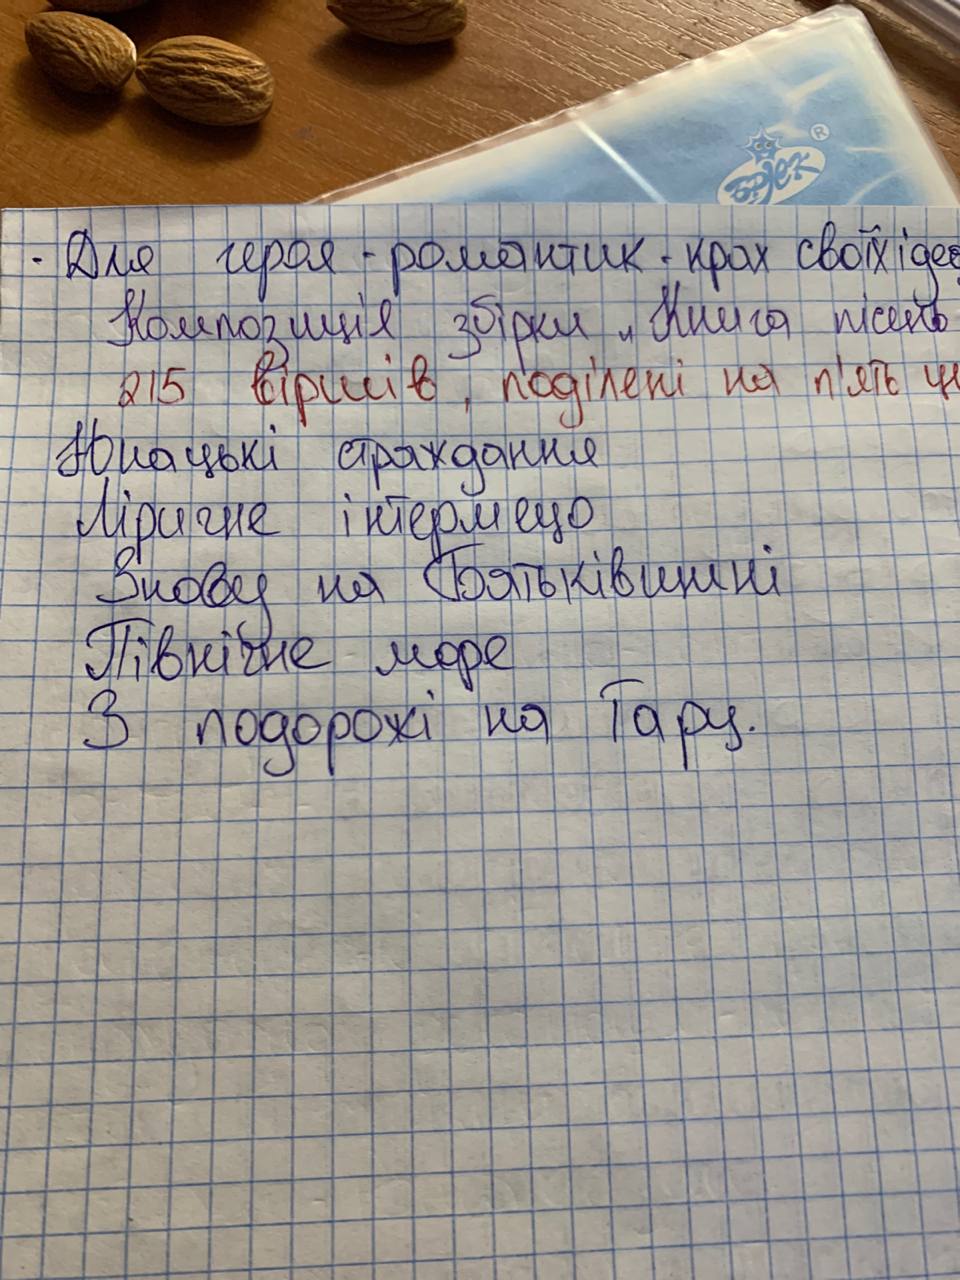 БРІЄК ®
· Для героя - романтик - крах своїх ідеа
Композиція збірки „Книга пісень
215 віршів, поділені на п'ять ци
Юнацькі страждання
Ліричне інтермецо
Знову на Батьківщині
Північне море
З подорожі на Гарц.